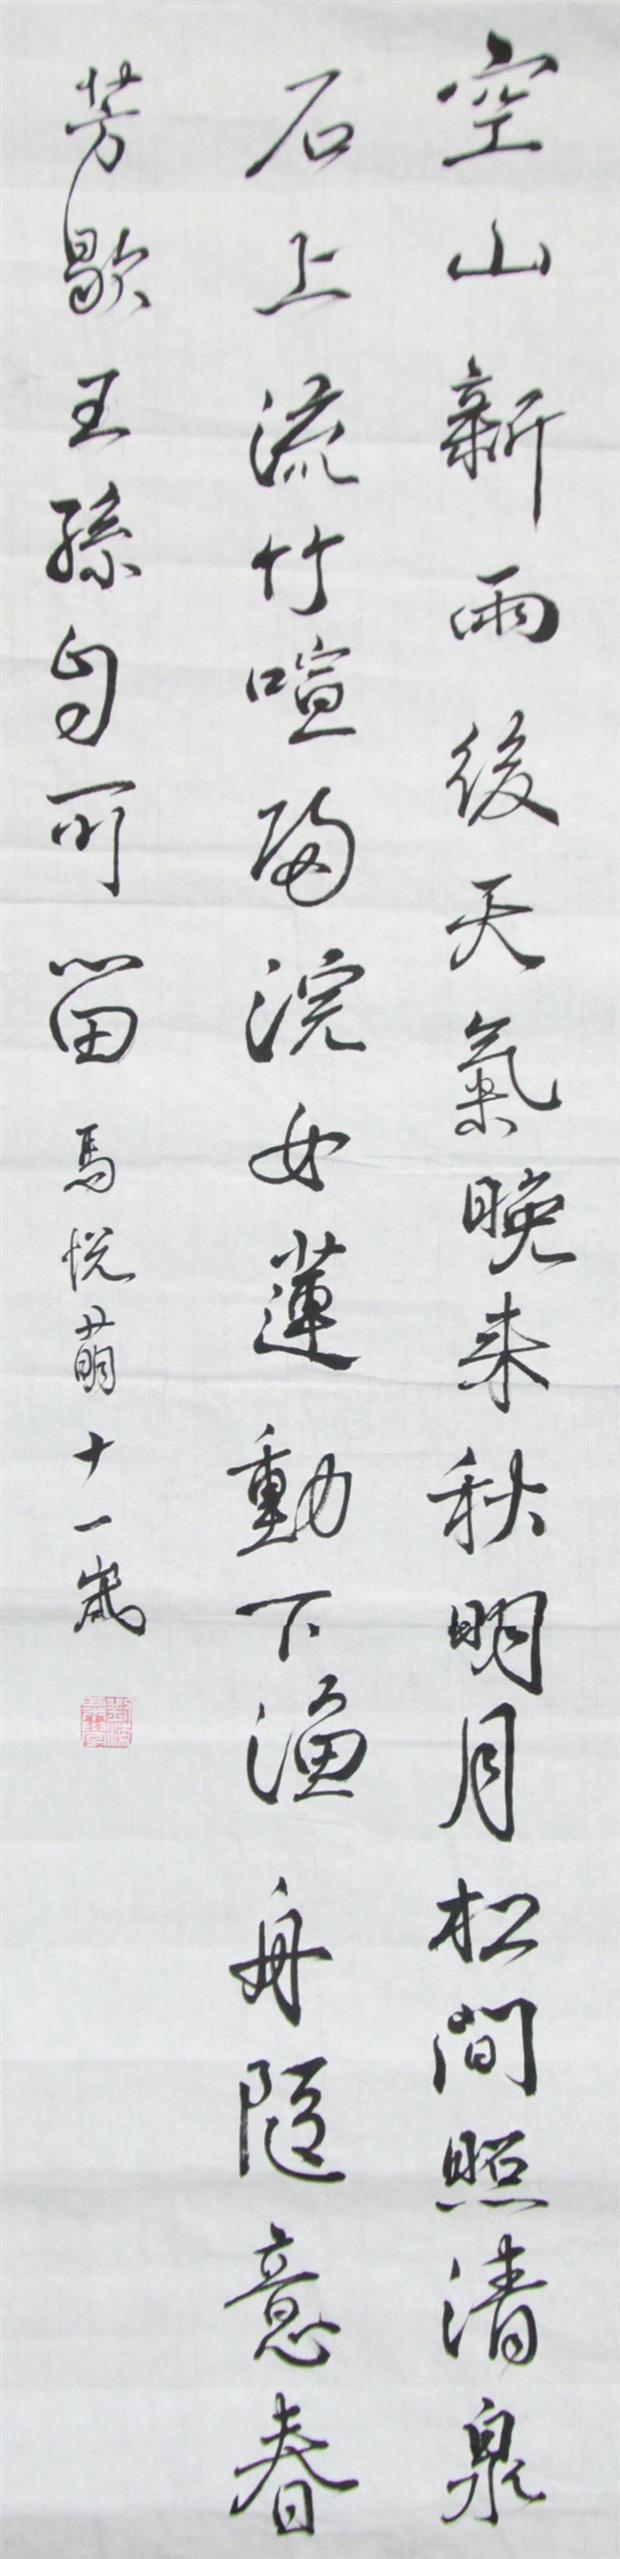 空山新雨後天氣晚来秋明月松間照清泉
石上流竹喧歸浣女蓮動下漁舟隨意春
芳歇王孫自可留馬悦萌十一歲